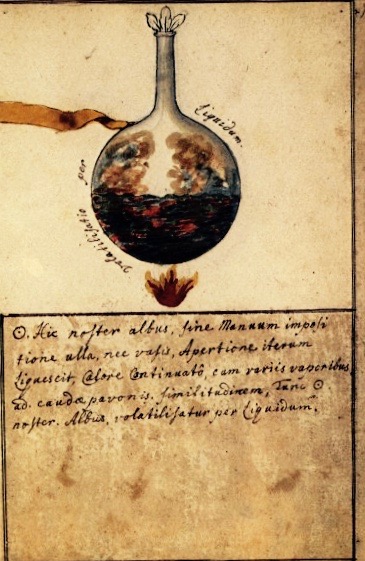 Liquidum.
per
volatilisatio
☉. Hic noster albus, sine Manuum imposi
tione ulla, nec vasis, Apertione iterum
Liquescit, Calore Continuatô, cum variis vaporibus
ad. caudæ pavonis. similitudinem, Tunc ☉
noster. Albus, volatilisatur per Liquidum.